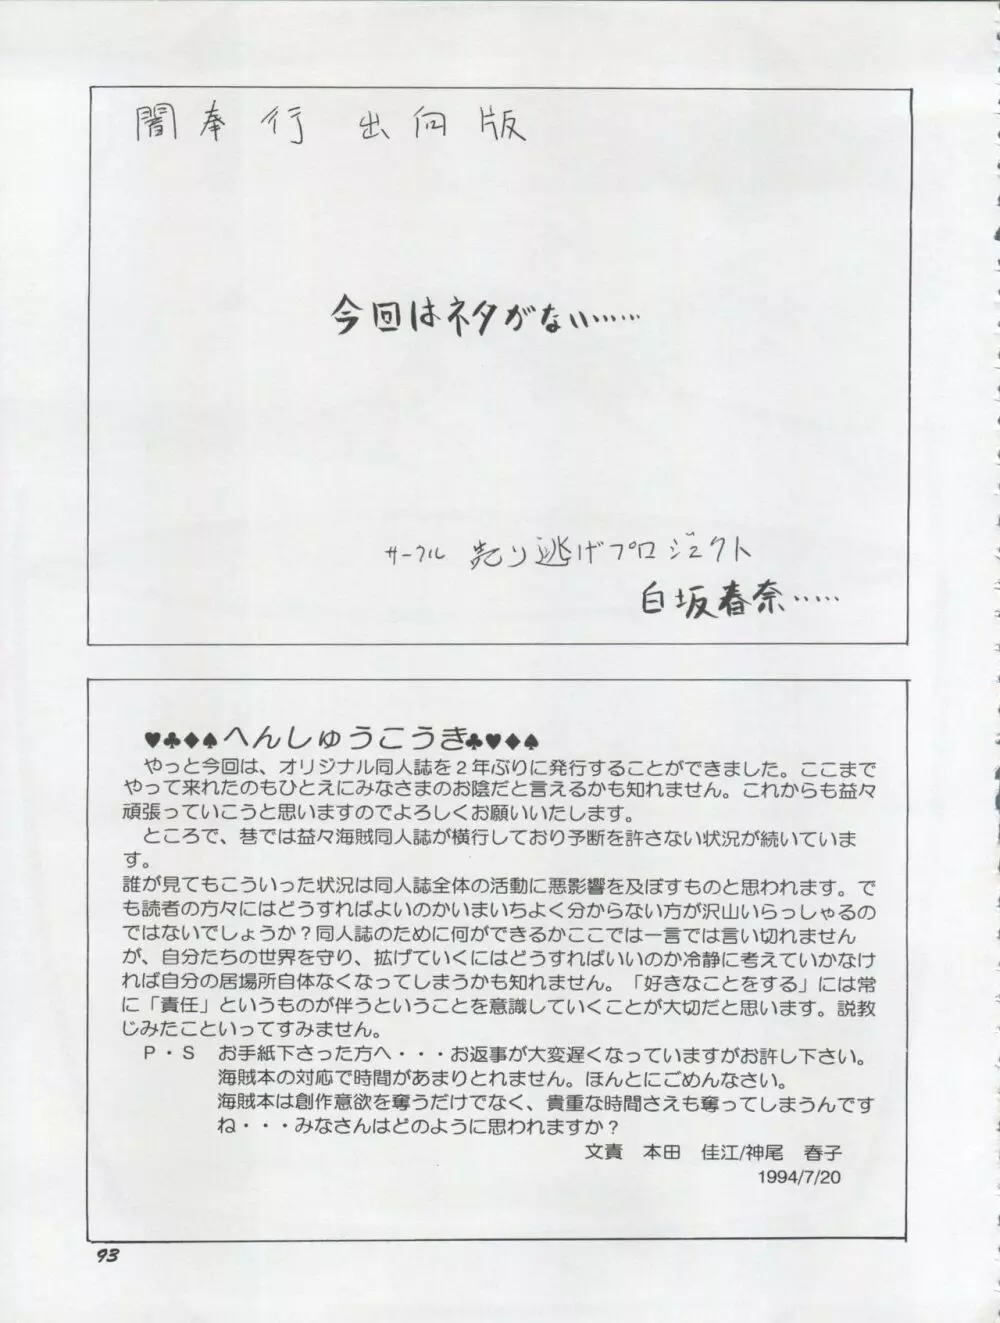 闇奉行 出向版
今回はネタがない……
サークル 売り逃げプロジェクト
白坂春奈……
♥♣♦♠へんしゅうこうき♣♥♦♠
やっと今回は、オリジナル同人誌を2年ぶりに発行することができました。ここまで
やって来れたのもひとえにみなさまのお陰だと言えるかも知れません。これからも益々
頑張っていこうと思いますのでよろしくお願いいたします。
ところで、巷では益々海賊同人誌が横行しており予断を許さない状況が続いていま
す。
誰が見てもこういった状況は同人誌全体の活動に悪影響を及ぼすものと思われます。で
も読者の方々にはどうすればよいのかいまいちよく分からない方が沢山いらっしゃるの
ではないでしょうか？同人誌のために何ができるかここでは一言では言い切れません
が、自分たちの世界を守り、拡げていくにはどうすればいいのか冷静に考えていかなけ
れば自分の居場所自体なくなってしまうかも知れません。「好きなことをする」には常
に「責任」というものが伴うということを意識していくことが大切だと思います。説教
じみたこといってすみません。
P・S お手紙下さった方へ・・・お返事が大変遅くなっていますがお許し下さい。
海賊本の対応で時間があまりとれません。ほんとにごめんなさい。
海賊本は創作意欲を奪うだけでなく、貴重な時間さえも奪ってしまうんです
ね・・・みなさんはどのように思われますか？
文責 本田 佳江/神尾 春子
1994/7/20
93